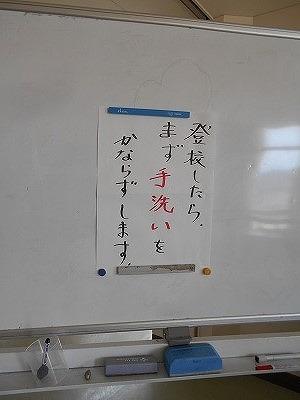 登校したら、
まず手洗いを
かならずします。